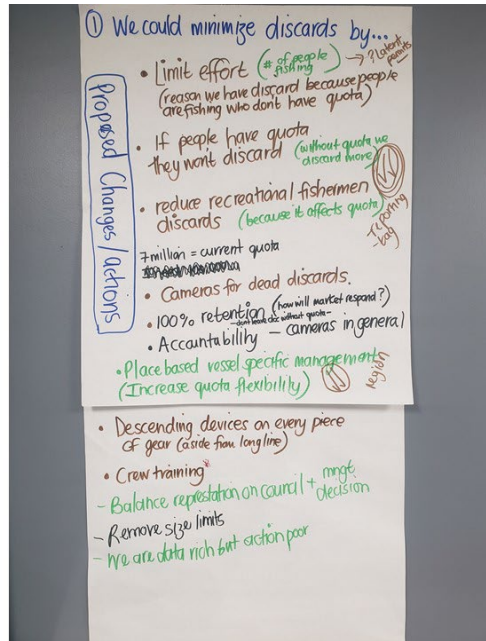 ① We could minimize discards by...
Proposed Changes/actions
• Limit effort (# of people fishing) → ? latent permits
(reason we have discard because people
are fishing who don't have quota)
• If people have quota
they won't discard (without quota we
discard more)
• reduce recreational fishermen
discards (because it affects quota)
- reporting
- tag
7 million = current quota
• Cameras for dead discards.
• 100% retention (how will market respond?)
- dont leave doc without quota -
• Accountability - cameras in general
• Place based vessel specific management
(Increase quota flexibility)
region
• Descending devices on every piece
of gear (aside from longline)
• Crew training*
- Balance represtation on council + mngt
decision
- Remove size limits
- We are data rich but action poor